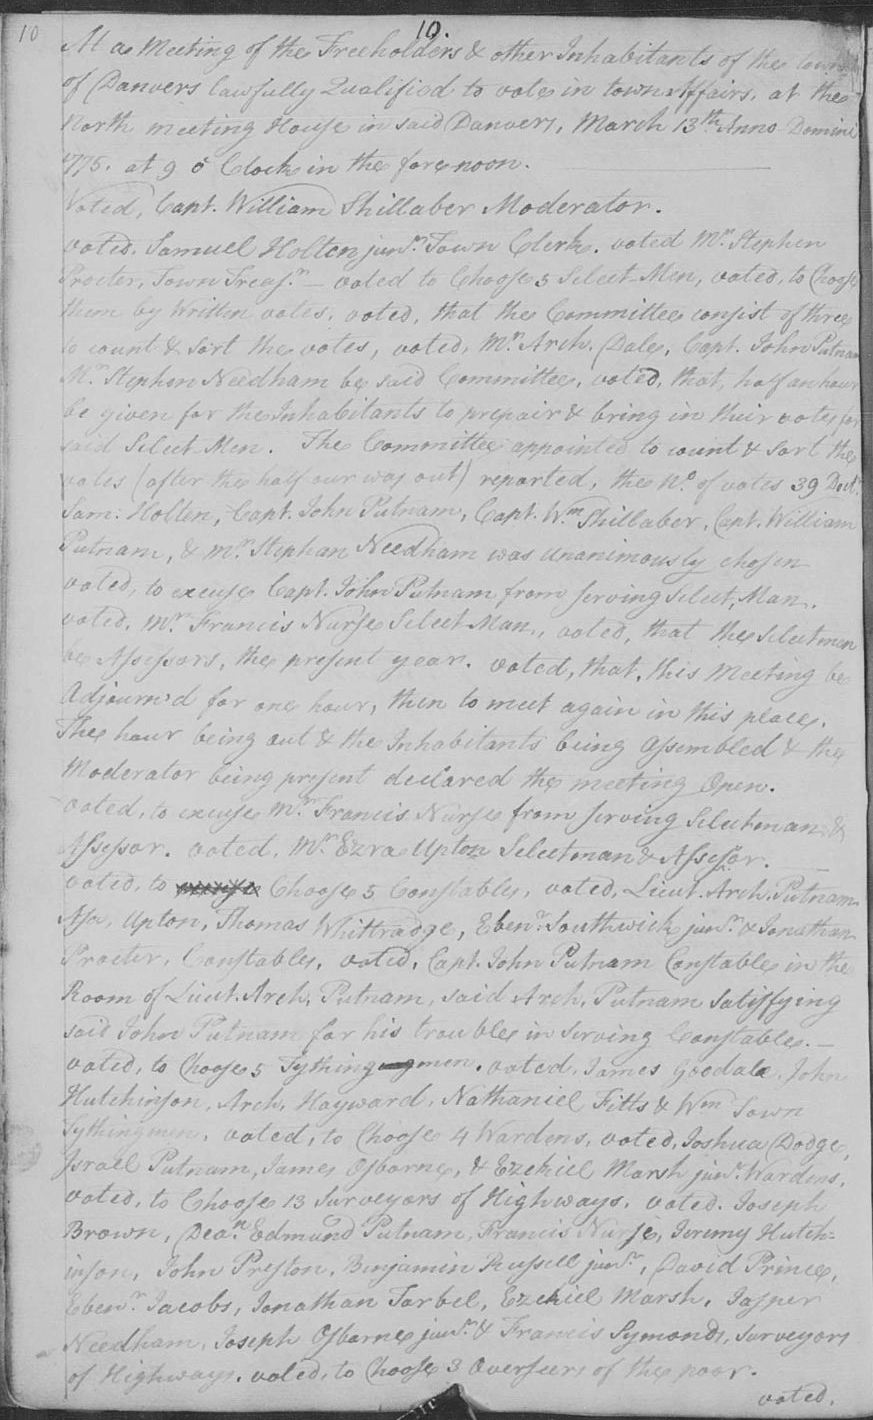 10
10.
At a Meeting of the Freeholders & other Inhabitants of the town
of Danvers lawfully Qualified to vote in town Affairs, at the
North meeting House in said Danvers, March 13th Anno Domini
1775. at 9 o Clock in the forenoon.
Voted, Capt. William Shillaber Moderator.
voted. Samuel Holten junr. Town Clerk. voted Mr. Stephen
Procter, Town Treasr. – voted to Choose 5 Select Men, voted, to Choose
them by Written votes, voted, that the Committee consist of three
to count & Sort the votes, voted, Mr. Arch. Dale, Capt. John Putnam
Mr. Stephen Needham be said Committee, voted, that, half an hour
be given for the Inhabitants to prepair & bring in their votes for
said Select Men. The Committee appointed to count & Sort the
votes (after the half our was out) reported, the No. of votes 39 Doct.
Sam: Holten, Capt. John Putnam, Capt. Wm. Shillaber, Capt. William
Putnam, & Mr. Stephan Needham was unanimously chosen
voted, to excuse Capt. John Putnam from serving Select, Man.
voted, Mr. Francis Nurse Select Man, voted, that the Selectmen
be Assessors, the present year. voted, that, this Meeting be
Adjourn'd for one hour, then to meet again in this place.
The hour being out & the Inhabitants being Assembled & the
Moderator being present declared the meeting Open.
voted, to excuse Mr. Francis Nurse from serving Selectman &
Assessor. voted, Mr. Ezra Upton Selectman & Assessor.
voted, to Choose 5 Constables, voted, Lieut. Arch. Putnam
Asa, Upton, Thomas Whittradge, Ebenr. Southwick junr. & Jonathan
Procter, Constables, voted, Capt. John Putnam Constable in the
Room of Lieut. Arch, Putnam, said Arch, Putnam Satisfying
said John Putnam for his trouble in serving Constable. –
voted, to Choose 5 Tythingmen. voted, James Goodale, John
Hutchinson, Arch. Hayward, Nathaniel Fitts & Wm Town
Tythingmen, voted, to Choose 4 Wardens, voted, Joshua Dodge,
Israel Putnam, James Osborne, & Ezekiel Marsh junr. Wardens.
voted, to Choose 13 Surveyors of Highways, voted. Joseph
Brown, Dean. Edmund Putnam, Francis Nurse, Jeremy Hutch=
inson, John Preston, Benjamin Russell junr., David Prince,
Ebenr. Jacobs, Jonathan Tarbel, Ezekiel Marsh, Jasper
Needham, Joseph Osborne junr. & Francis Symonds, Surveyors
of Highways. voted, to Choose 3 Overseers of the poor.
voted.